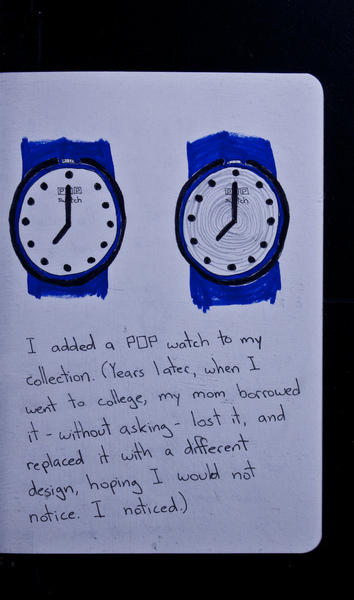 POP
swatch
POP
swatch
I added a POP watch to my
collection. (Years later, when I
went to college, my mom borrowed
it - without asking - lost it, and
replaced it with a different
design, hoping I would not
notice. I noticed.)